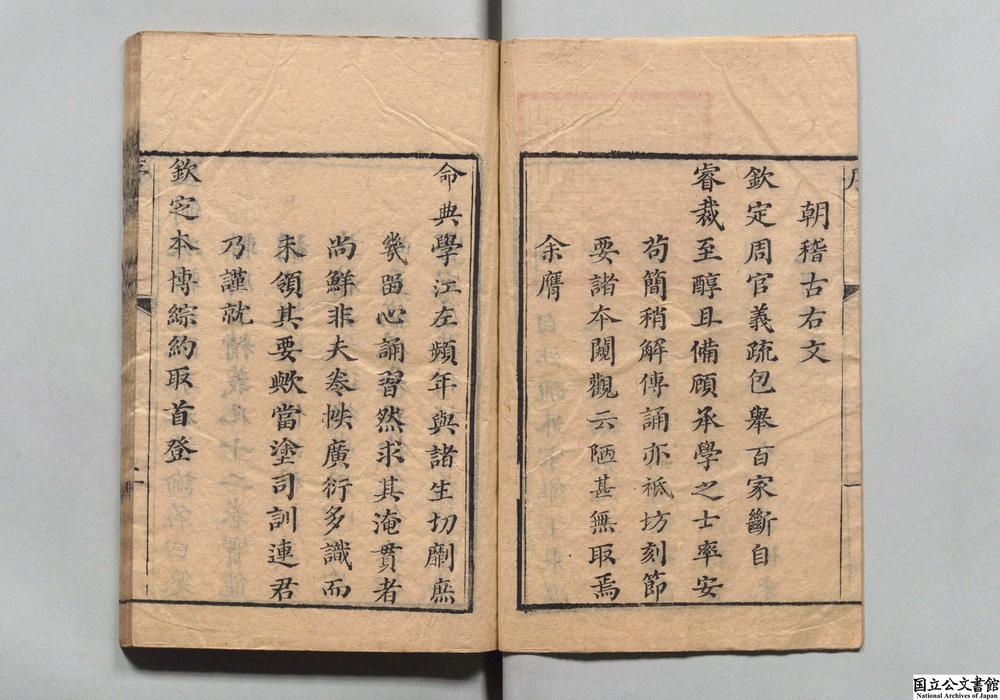 朝稽古右文
欽定周官義疏包舉百家斷自
睿裁至醇且備顧承學之士率安
苟簡稍解傳誦亦祇坊刻節
要諸本閱觀云陋甚無取焉
余膺
命典學江左頻年與諸生切劘庶
幾畱心誦習然求其淹貫者
尚鮮非夫卷帙廣衍多識而
未領其要歟當塗司訓連君
乃謹就
欽定本博綜約取首登
国立公文書館
National Archives of Japan